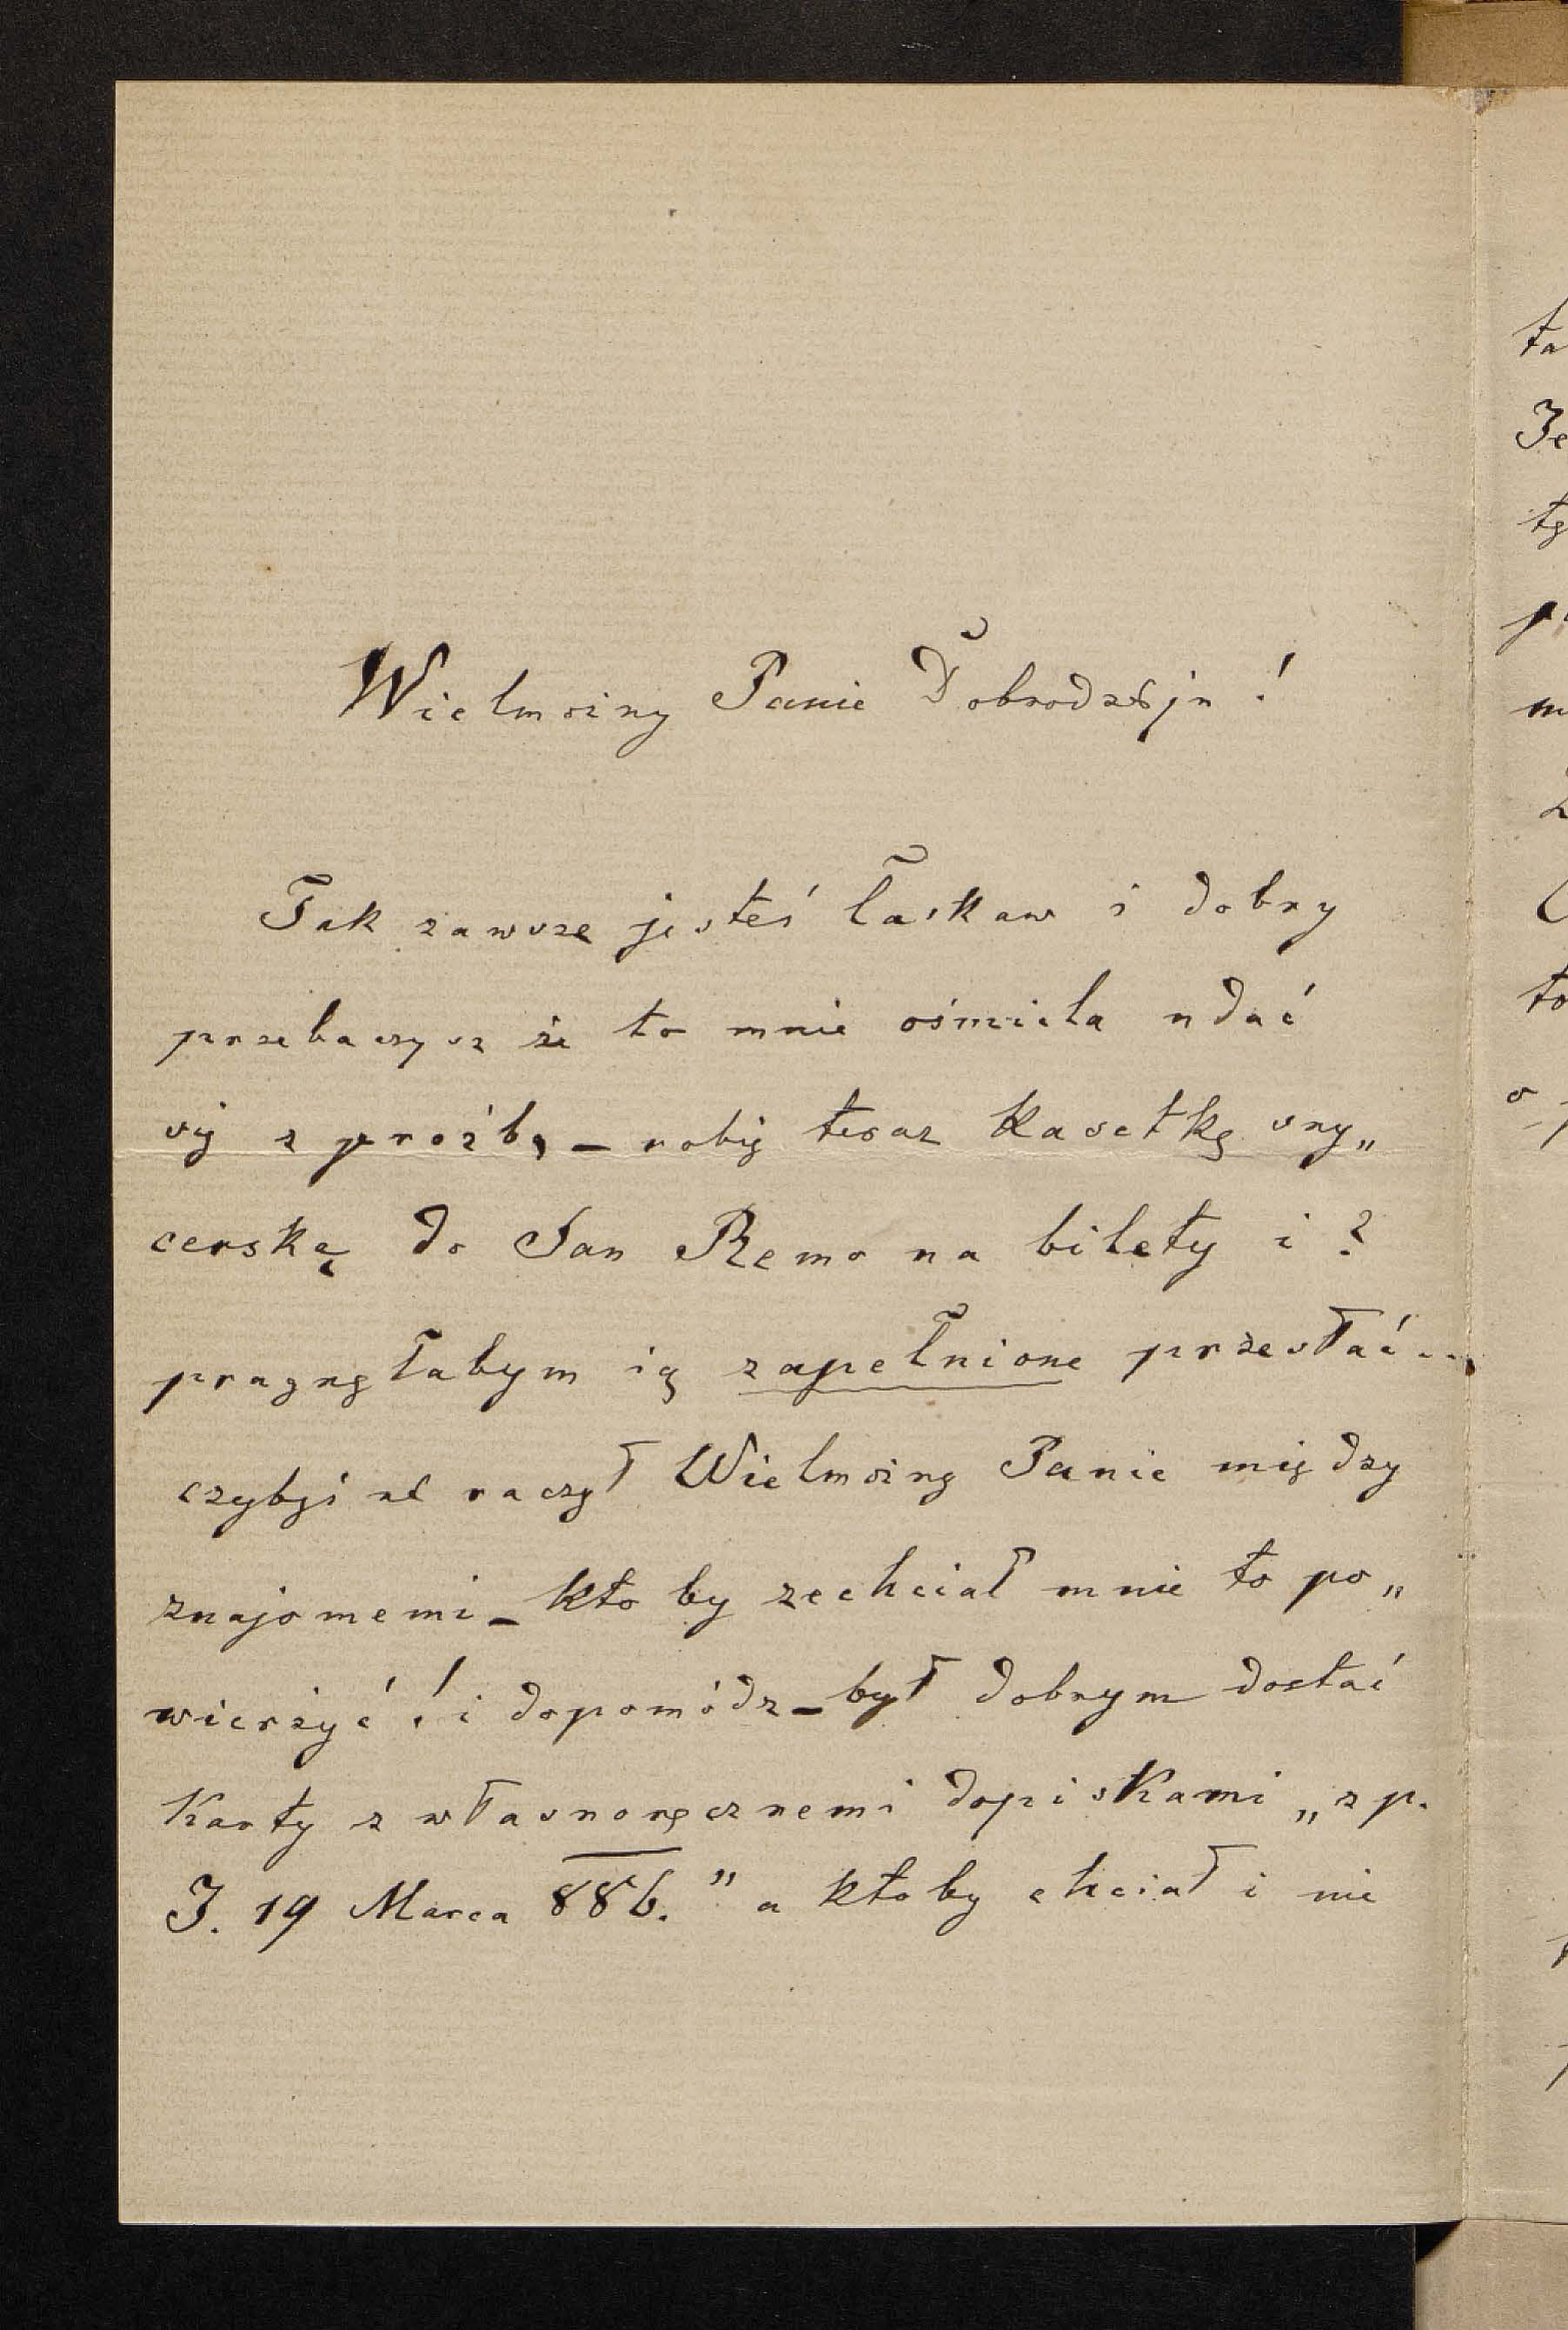 Wielmożny Panie Dobrodzieju!
Tak zawsze jesteś łaskaw i dobry
przebaczysz że to mnie ośmiela udać
się z prośbą – robię teraz Kasetkę sny„
cerską do San Remo na bilety i ?
pragnęłabym ią zapełnione przesłać...
czybyś nie raczył Wielmożny Panie między
znajomemi – kto by zechciał mnie to po„
wierżyć! i dopomódz – był dobrym dostać
Karty z własnoręcznemi dopiskami „z p.
J. 19 Marca 886." a ktoby chciał i nie
ta
Je
tę
m
to
o